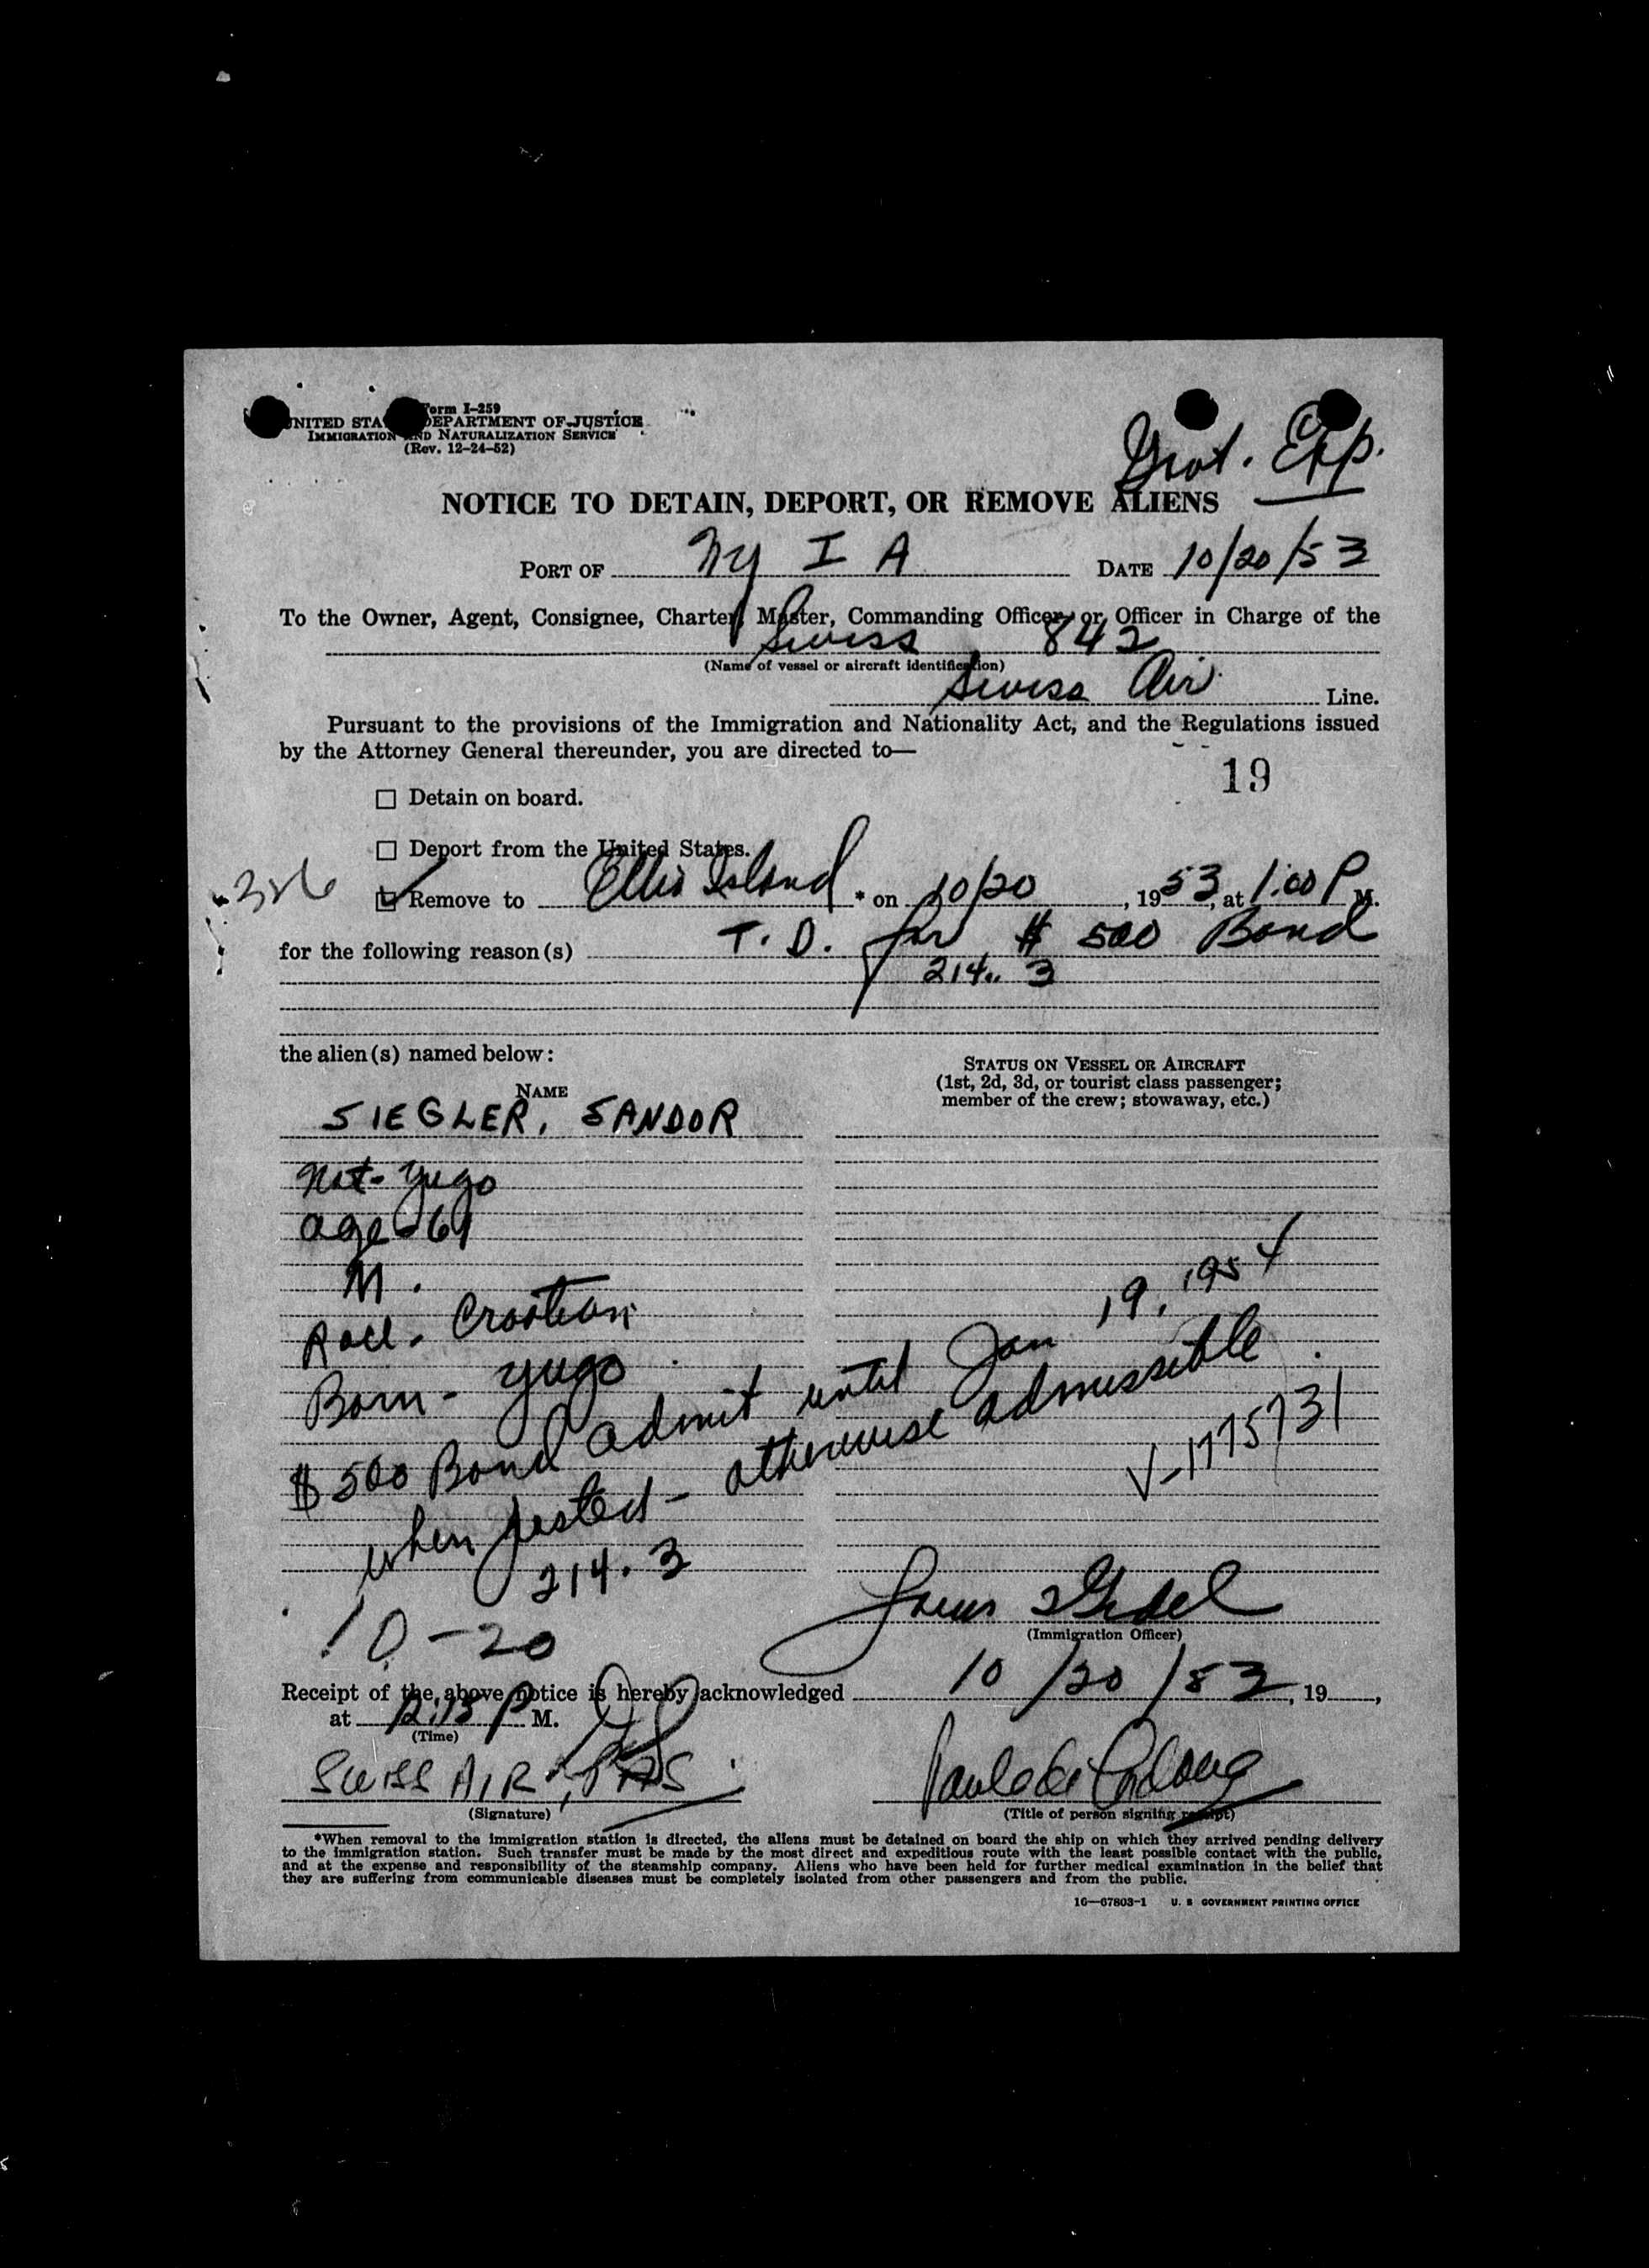 Form I-259
UNITED STATES DEPARTMENT OF JUSTICE
IMMIGRATION AND NATURALIZATION SERVICE
(Rev. 12-24-52)
Govt. Exp.
NOTICE TO DETAIN, DEPORT, OR REMOVE ALIENS
PORT OF NY I A DATE 10/20/53
To the Owner, Agent, Consignee, Charter, Master, Commanding Officer, or Officer in Charge of the
Swiss 842
(Name of vessel or aircraft identification)
Swiss Air Line.
Pursuant to the provisions of the Immigration and Nationality Act, and the Regulations issued
by the Attorney General thereunder, you are directed to—
19
Detain on board.
Deport from the United States.
326
Remove to Ellis Island * on 10/20, 1953, at 1:00 P M.
for the following reason(s) T. D. for $ 500 Bond
214.. 3
the alien(s) named below:
NAME
STATUS ON VESSEL OR AIRCRAFT
(1st, 2d, 3d, or tourist class passenger;
member of the crew; stowaway, etc.)
SIEGLER, SANDOR
Nat- Yugo
age - 61
M.
Race- Croatian
Born- Yugo
$500 Bond admit until Jan 19, 1954
when posted - otherwise admissible.
V-1775731
214. 3
(Immigration Officer)
10-20
Receipt of the above notice is hereby acknowledged 10/20/53, 19,
at 12:15 P M.
(Time)
SWISS AIR
(Signature)
(Title of person signing receipt)
*When removal to the immigration station is directed, the aliens must be detained on board the ship on which they arrived pending delivery
to the immigration station. Such transfer must be made by the most direct and expeditious route with the least possible contact with the public,
and at the expense and responsibility of the steamship company. Aliens who have been held for further medical examination in the belief that
they are suffering from communicable diseases must be completely isolated from other passengers and from the public.
16—67803-1 U. S. GOVERNMENT PRINTING OFFICE